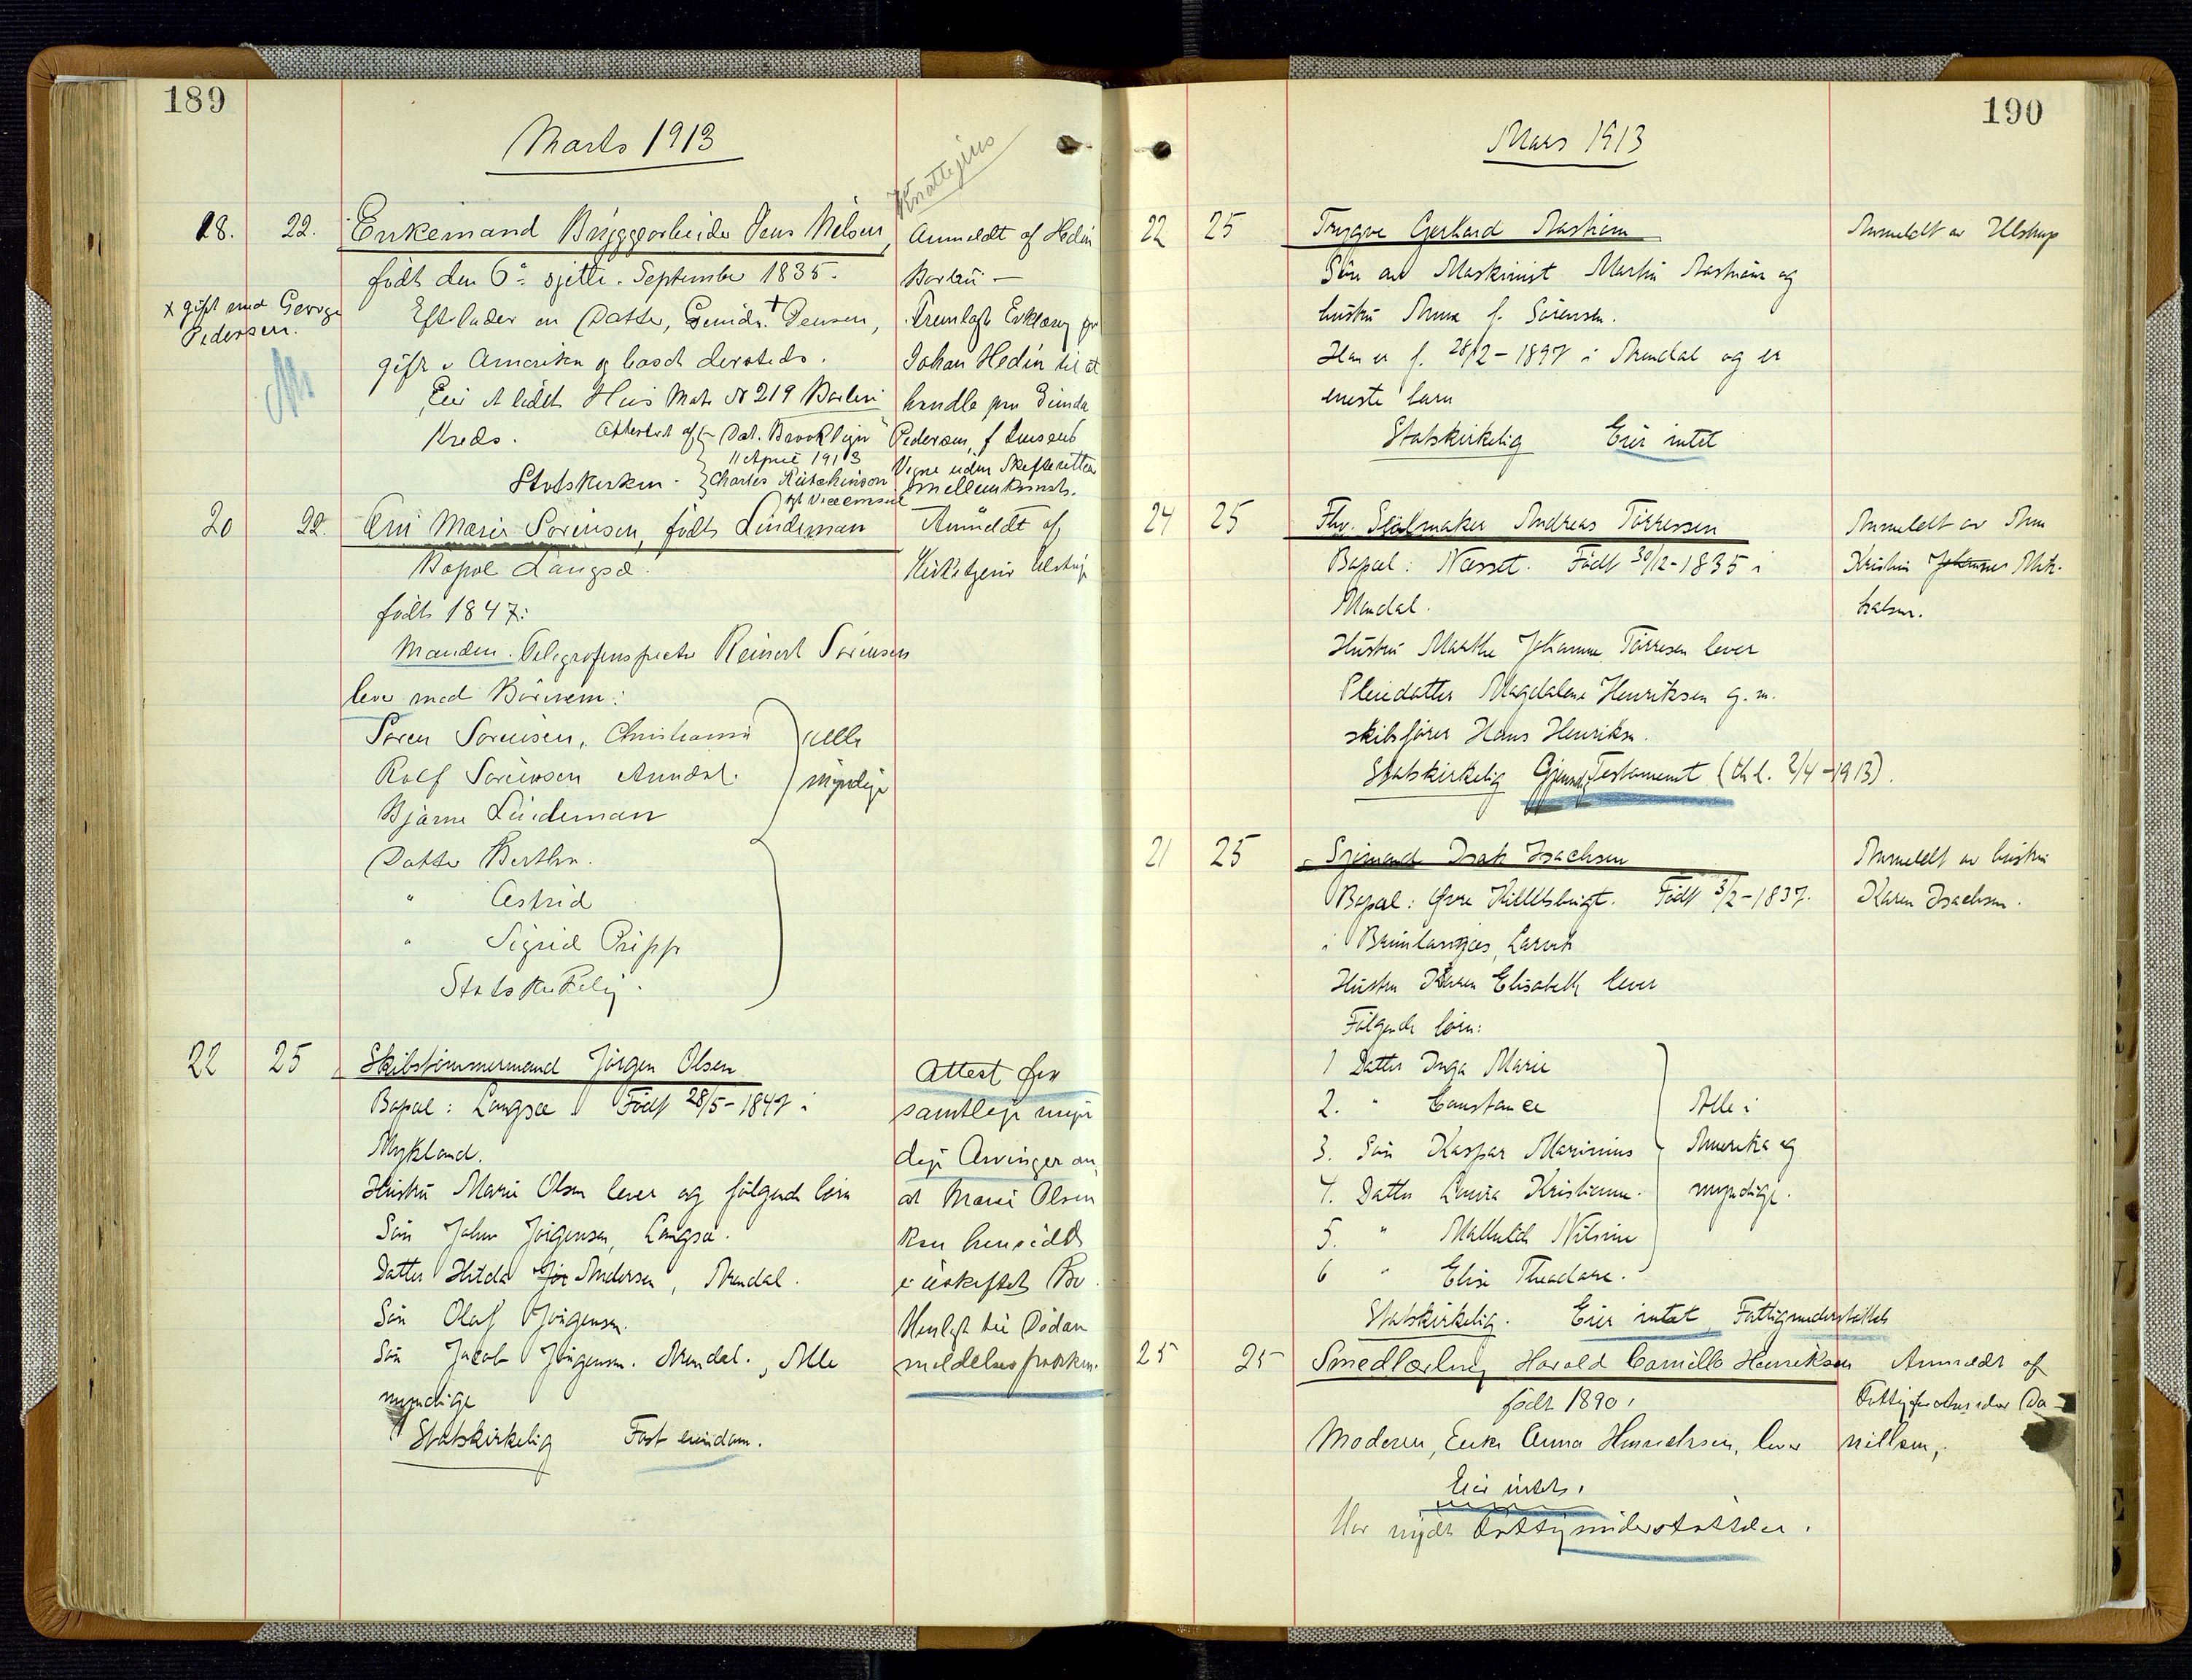 189
Marts 1913
18. 22. Enkemand Bryggearbeider Jens Nilsen,
født den 6. sjette September 1835.
Efterlader en Datter, Jensen,
gift i Amerika og bosat dersteds.
Eier et lidet Hus Mat No 219 Barbu
Kreds. Attesteret af Dat. Brooklyn
11 April 1913
Statskirken. Charles Hutchinson
x gift med George
Pedersen.
Anmeldt af Hedin
Barbu —
Fremlagt Erklæring for
Johan Hedin til at
handle paa
Pedersen, f. Jensens
Vegne uden Skifterettens
mellemkomst.
20 22. Ane Marie Sørensen, født Lindeman
Bopæl Langsæ.
født 1847:
Manden Telegrafinspektør Reinert Sørensen
lever med Børnene:
Søren Sørensen, Christiania
Rolf Sørensen Arendal.
Bjarne Lindeman
Datter Berthe.
" Astrid
" Sigrid Pripp
Statskirkelig.
alle
myndige
Anmeldt af
Kirketjener Ulstrup
22 25 Skibstømmermand Jörgen Olsen
Bopæl: Langsæ. Född 28/5-1847 i
Mykland.
Hustru Marie Olsen lever og følgende børn
Søn John Jörgensen, Langsæ.
Datter Hilda Andersen, Arendal.
Søn Olaf Jörgensen.
Søn Jacob Jörgensen. Arendal., Alle
myndige
Statskirkelig Fast eiendom.
Attest fra
samtlige myn
dige Arvinger om,
at Marie Olsen
kan hensidde
i uskiftet Bo.
Henlagt til Dødsan
meldelsesprotokol.
190
Mars 1913
22 25 Trygve Gerhard
Søn av Maskinist Martin og
hustru Anna f. Sørensen.
Han er f. 28/2-1897 i Arendal og er
eneste barn
Statskirkelig Eier intet
Anmeldt av Ulstrup
24 25 Fhv. Seilmaker Andreas Tørressen
Bopæl: Næsset. Född 30/12-1835 i
Mandal.
Hustru Marthe Johanne Tørresen lever
Pleiedatter Magdalene Henriksen g. m.
skibsfører Hans Henriksen.
Statskirkelig Gjensidig Testament (thl. 2/4-1913).
Anmeldt av
Kristine
21 25 Sjømand Isak Isachsen
Bopæl: Øvre Född 3/2-1837.
i Brunlanæs, Larvik
Hustru Karen Elisabeth lever
Følgende børn:
1 Datter Inga Marie
2. " Constance
3. Søn Kaspar Marinius
4. Datter Kristianne.
5. " Mathilde Nilsine
6 " Elise Theodora.
Alle i
Amerika og
myndige.
Statskirkelig. Eier intet Fattigunderstøttet
Anmeldt av hustru
Karen Isachsen.
25 25 Smedlærling Harald Camillo Henriksen
født 1890.
Moderen, Enke Anna Henrichsen, lever
Eier intet.
Har nydt Fattigunderstøttelse.
Anmeldt af
Fattigforstander Da-
nielsen,